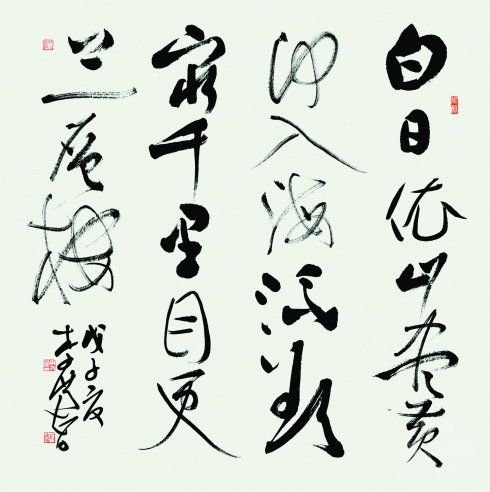 白日依山盡黄
河入海流欲
窮千里目更
上一層樓
戊子夏